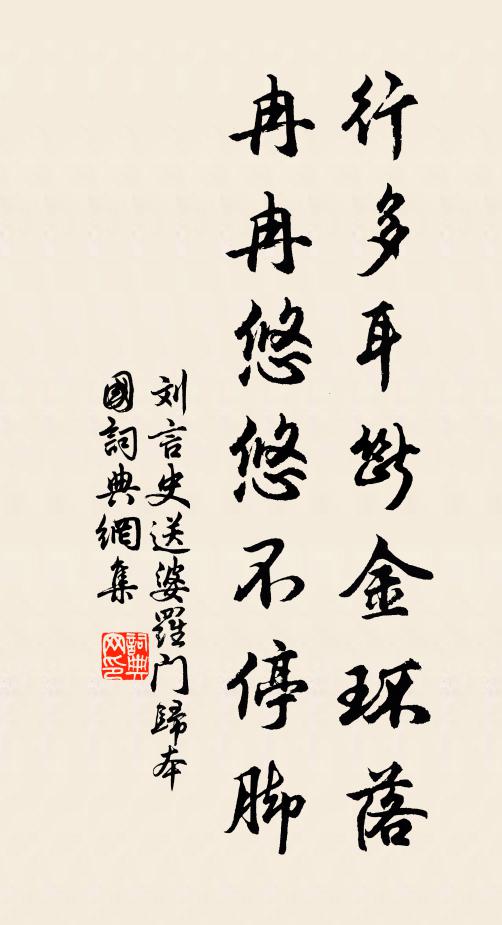 行多耳断金环落
冉冉悠悠不停脚
刘言史送婆羅门歸本
國詞典網集
詞典
网印